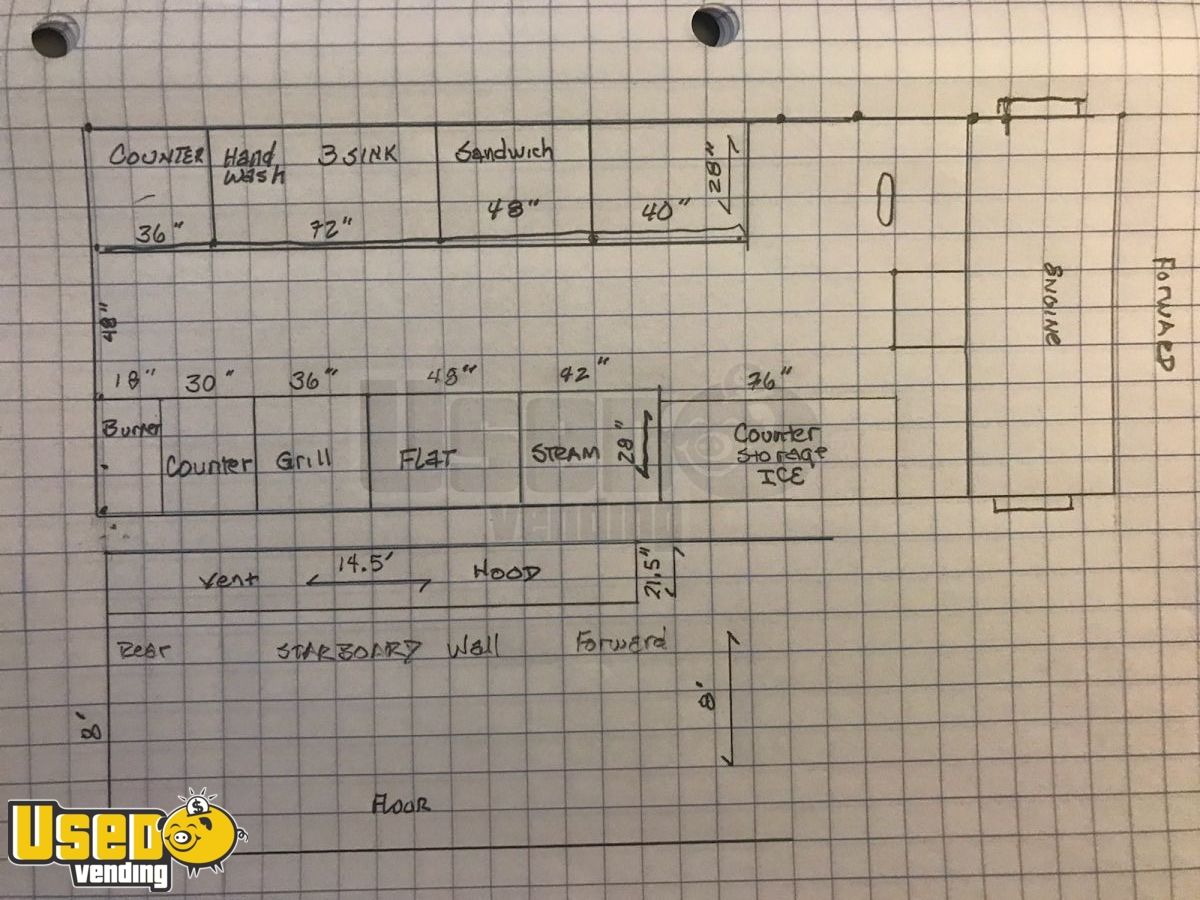 COUNTER
Hand
Wash
3 SINK
Sandwich
28"
36"
72"
48"
40"
ENGINE
FORWARD
48"
18"
30"
36"
48"
42"
76"
Burner
Counter
Grill
FLAT
STEAM
28"
Counter
Storage
ICE
USED
Vending
Vent
14.5'
HOOD
21.5"
Rear
STARBOARD Wall
Forward
8'
8'
FLOOR
USED
Vending
$